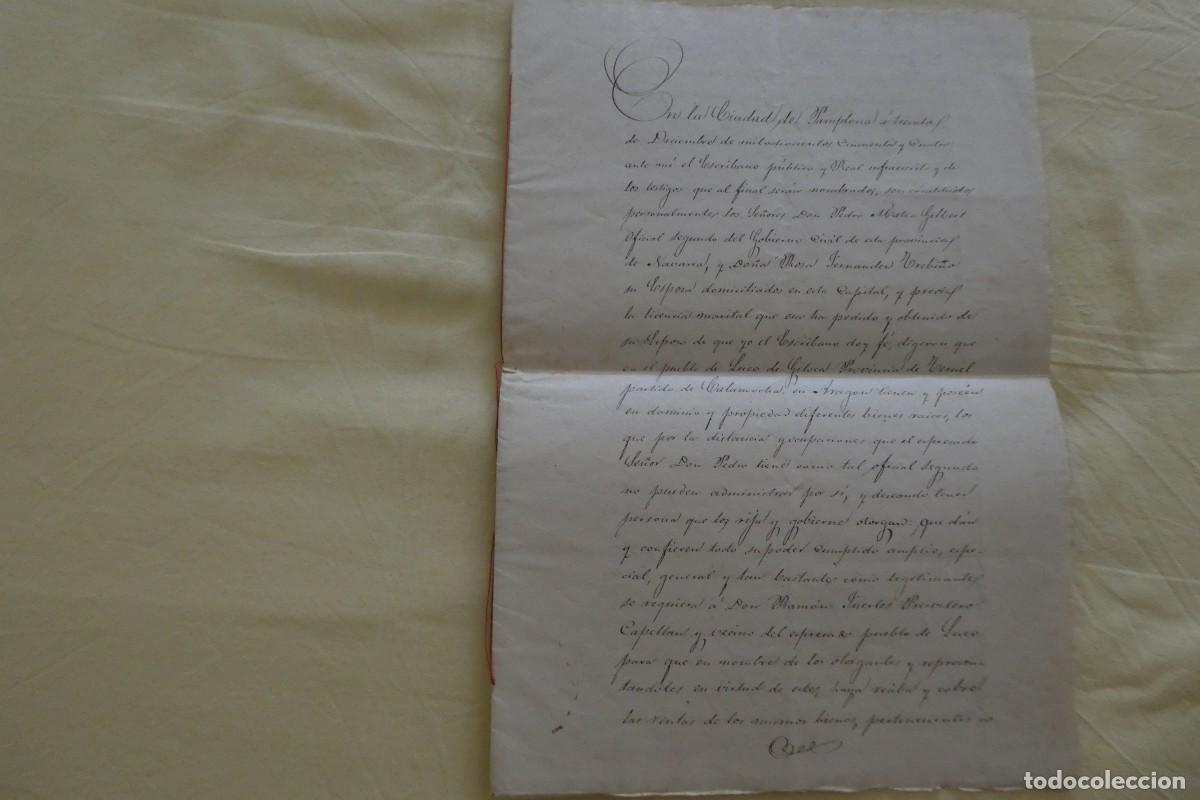 En la Ciudad de Pamplona á treinta
de Diciembre de mil ochocientos Cincuenta y Cuatro
ante mí el Escribano público y Real infrascrito y de
los testigos que al final serán nombrados, son constituidos
personalmente los Señores Don Pedro Mateo Gilbert
Oficial segundo del Gobierno Civil de esta provincia
de Navarra, y Doña Rosa Fernandez Trebiño
su Esposa domiciliados en esta Capital, y previa
la licencia marital que esa ha pedido y obtenido de
su Esposo de que yo el Escribano doy fé, digeron que
en el pueblo de Luco de Giloca Provincia de Teruel
partido de Calamocha, en Aragon tienen y poseen
en dominio y propiedad diferentes bienes raices, los
que por la distancia y ocupaciones que el espresado
Señor Don Pedro tiene como tal oficial segundo
no pueden administrar por sí, y deseando tener
persona que los rija y gobierne otorgan: que dán
y confieren todo su poder cumplido amplio, espe-
cial, general y tan bastante como legalmente
se requiera á Don Ramón Fuertes Presvitero
Capellan y vecino del espresado pueblo de Luco
para que en nombre de los otorgantes y represen-
tandoles en virtud de este, haya reciba y cobre
las rentas de los mismos bienes, pertenecientes
todocoleccion